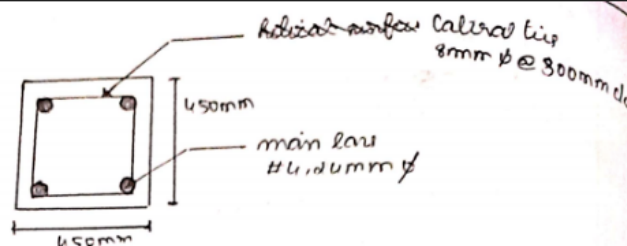 lateral ties
8mm ϕ @ 300mm c/c
450mm
main bars
#4, 24mm ϕ
450mm